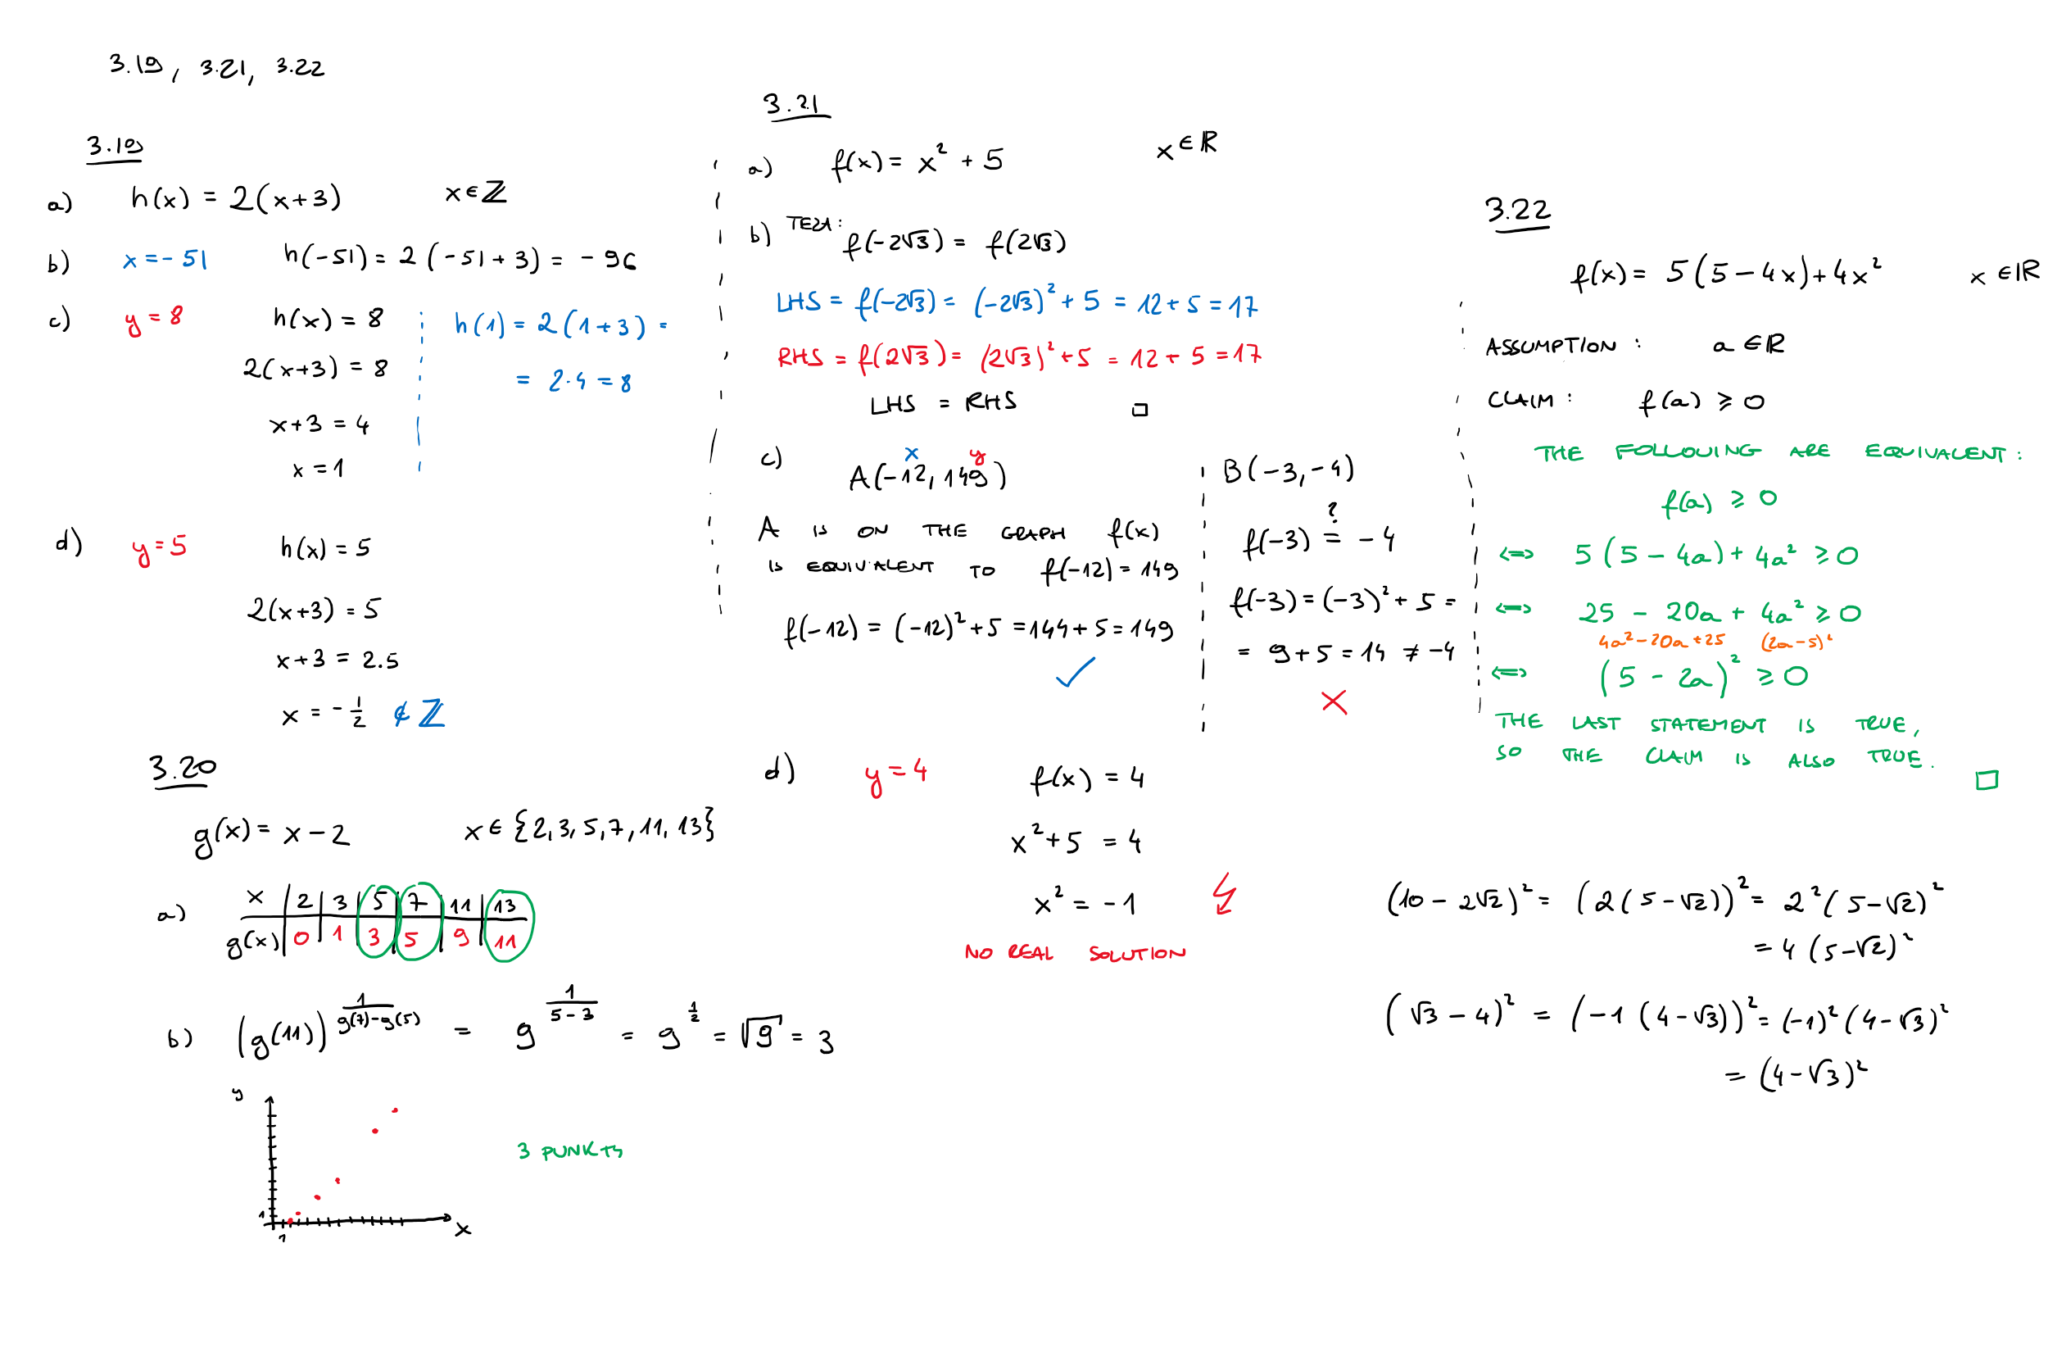 3.19, 3.21, 3.22
3.19
a) h(x) = 2(x+3) x∈ℤ
b) x = -51 h(-51) = 2(-51+3) = -96
c) y = 8 h(x) = 8
2(x+3) = 8
x+3 = 4
x = 1
h(1) = 2(1+3) =
= 2·4 = 8
d) y = 5 h(x) = 5
2(x+3) = 5
x+3 = 2.5
x = -1/2 ∉ ℤ
3.20
g(x) = x-2 x∈{2,3,5,7,11,13}
a) x 2 3 5 7 11 13
g(x) 0 1 3 5 9 11
b) (g(11))^(1/(g(7)-g(5))) = 9^(1/(5-3)) = 9^(1/2) = √9 = 3
y
1
1
x
3 PUNKTY
3.21
a) f(x) = x² + 5 x∈ℝ
b) TEZA: f(-2√3) = f(2√3)
LHS = f(-2√3) = (-2√3)² + 5 = 12 + 5 = 17
RHS = f(2√3) = (2√3)² + 5 = 12 + 5 = 17
LHS = RHS □
x y
c) A(-12, 149)
A IS ON THE GRAPH f(x)
IS EQUIVALENT TO f(-12) = 149
f(-12) = (-12)² + 5 = 144 + 5 = 149
✓
B(-3, -4)
?
f(-3) = -4
f(-3) = (-3)² + 5 =
= 9 + 5 = 14 ≠ -4
✗
d) y = 4 f(x) = 4
x² + 5 = 4
x² = -1 ↯
NO REAL SOLUTION
3.22
f(x) = 5(5-4x) + 4x² x∈ℝ
ASSUMPTION: a∈ℝ
CLAIM: f(a) ⩾ 0
THE FOLLOWING ARE EQUIVALENT:
f(a) ⩾ 0
⟺ 5(5-4a) + 4a² ⩾ 0
⟺ 25 - 20a + 4a² ⩾ 0
4a²-20a+25 (2a-5)²
⟺ (5-2a)² ⩾ 0
THE LAST STATEMENT IS TRUE,
SO THE CLAIM IS ALSO TRUE. □
(10-2√2)² = (2(5-√2))² = 2²(5-√2)²
= 4(5-√2)²
(√3-4)² = (-1(4-√3))² = (-1)²(4-√3)²
= (4-√3)²